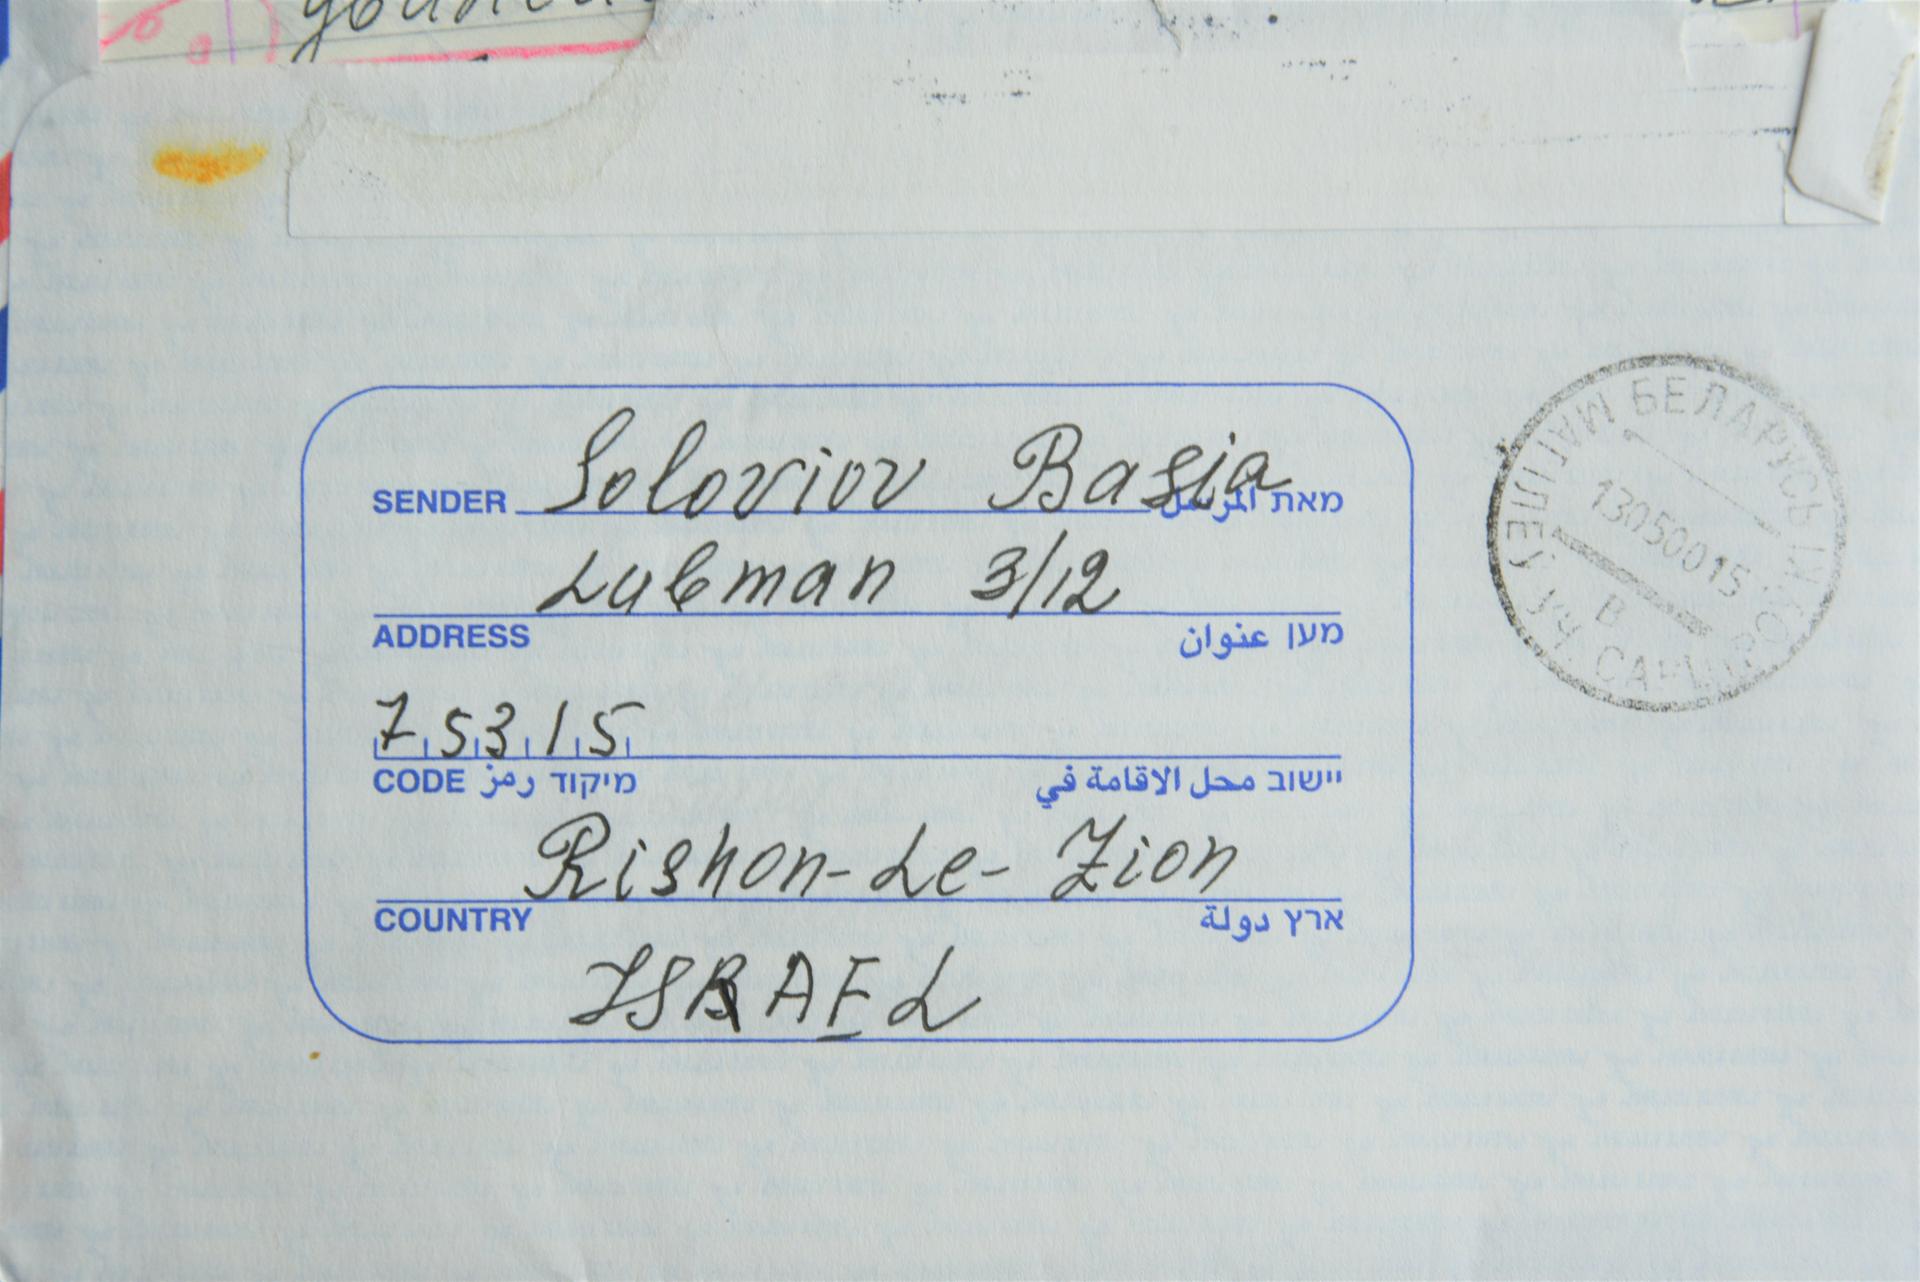 SENDER Soloviov Basia מאת المرسل
Lubman 3/12
ADDRESS מען عنوان
75315
CODE מיקוד رمز יישוב محل الاقامة في
Rishon-Le-Zion
COUNTRY ארץ دولة
ISRAEL
БЕЛАРУСЬ
МАГІЛЕЎ
130500 15
В